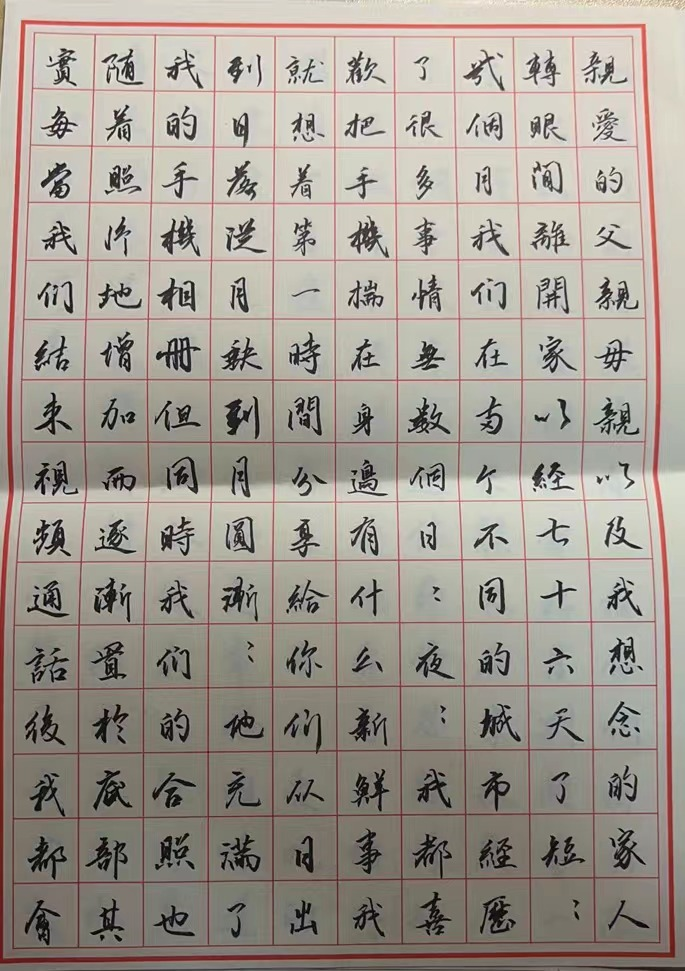 親愛的父親母親以及我想念的家人
轉眼間離開家以經七十六天了短:
弍個月我们在两个不同的城市經歷
了很多事情無數個日:夜:我都喜
歡把手機揣在身邊有什么新鮮事我
就想着第一時間分享給你们从日出
到日落從月缺到月圓漸:地充滿了
我的手機相冊但同時我们的合照也
随着照片地增加而逐漸置於底部其
實每當我们結束視頻通話後我都會